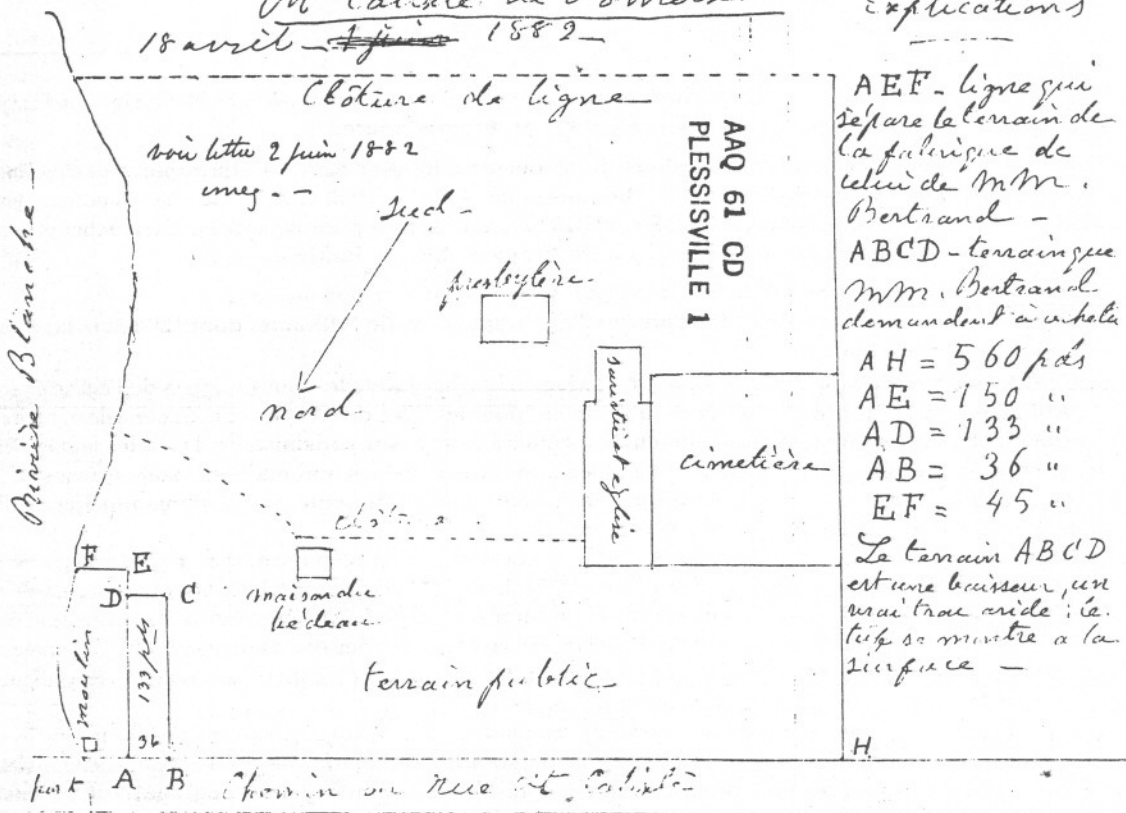 St Calixte de Somerset
18 avril - 1 juin 1882 -
Explications
Clôture de ligne
voir lettre 2 juin 1882
Sud -
nord
AAQ 61 CD
PLESSISVILLE 1
presbytère
sacristie et église
cimetière
Rivière Blanche -
clôture
F E
D C
maison du
bédeau
moulin
133/45
36
terrain public -
H
A B
pont
Chemin ou Rue St. Calixte
AEF - ligne qui
sépare le terrain de
la fabrique de
celui de MM.
Bertrand -
ABCD - terrain que
MM. Bertrand
demandent à acheter
AH = 560 pds
AE = 150 "
AD = 133 "
AB = 36 "
EF = 45 "
Le terrain ABCD
est une baisseur, un
vrai trou aride : le
tuf se montre a la
surface -